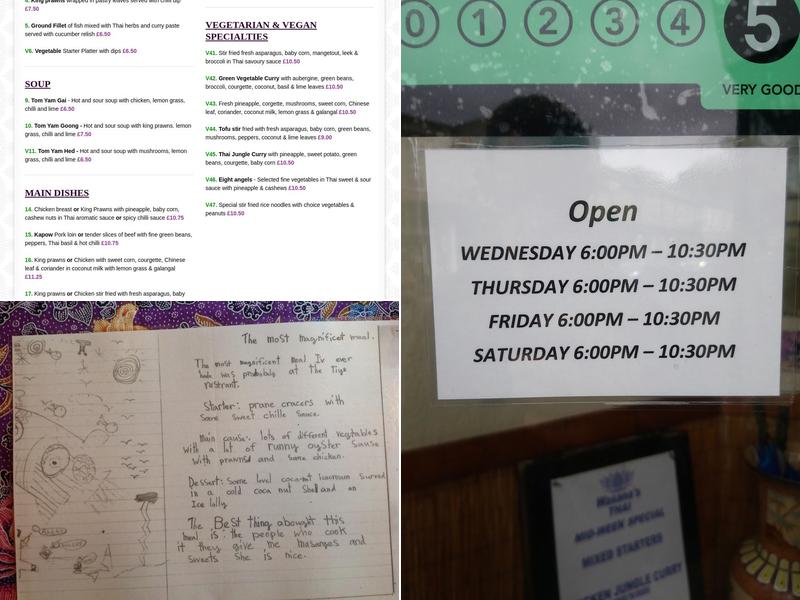 £7.50
5. Ground Fillet of fish mixed with Thai herbs and curry paste
served with cucumber relish £6.50
V6. Vegetable Starter Platter with dips £6.50
SOUP
9. Tom Yam Gai - Hot and sour soup with chicken, lemon grass,
chilli and lime £6.50
10. Tom Yam Goong - Hot and sour soup with king prawns. lemon
grass, chilli and lime £7.50
V11. Tom Yam Hed - Hot and sour soup with mushrooms, lemon
grass, chilli and lime £6.50
MAIN DISHES
14. Chicken breast or King Prawns with pineapple, baby corn,
cashew nuts in Thai aromatic sauce or spicy chilli sauce £10.75
15. Kapow Pork loin or tender slices of beef with fine green beans,
peppers, Thai basil & hot chilli £10.75
16. King prawns or Chicken with sweet corn, courgette, Chinese
leaf & coriander in coconut milk with lemon grass & galangal
£11.25
17. King prawns or Chicken stir fried with fresh asparagus, baby
VEGETARIAN & VEGAN
SPECIALTIES
V41. Stir fried fresh asparagus, baby corn, mangetout, leek &
broccoli in Thai savoury sauce £10.50
V42. Green Vegetable Curry with aubergine, green beans,
broccoli, courgette, coconut, basil & lime leaves £10.50
V43. Fresh pineapple, corgette, mushrooms, sweet corn, Chinese
leaf, coriander, coconut milk, lemon grass & galangal £10.50
V44. Tofu stir fried with fresh asparagus, baby corn, green beans,
mushrooms, peppers, coconut & lime leaves £9.00
V45. Thai Jungle Curry with pineapple, sweet potato, green
beans, courgette, baby corn £10.50
V46. Eight angels - Selected fine vegetables in Thai sweet & sour
sauce with pineapple & cashews £10.50
V47. Special stir fried rice noodles with choice vegetables &
peanuts £10.50
0 1 2 3 4 5
VERY GOOD
Open
WEDNESDAY 6:00PM – 10:30PM
THURSDAY 6:00PM – 10:30PM
FRIDAY 6:00PM – 10:30PM
SATURDAY 6:00PM – 10:30PM
THAI
MID-WEEK SPECIAL
MIXED STARTERS
JUNGLE CURRY
The most magnificet meal.
The most magnificent meal Iv ever
had was probably at the Tiye
restrant.
Starter: prane cracers with
Some sweet chille sauce.
Main cause: lots of different vegetables
with a lot of runny oyster sause
with prawnsd and some chicken.
Dessert: Some lovl coconut icecream surved
in a cold coca nut Shell and an
Ice lolly
The Best thing abought this
meal is: the people who cook
it they give me masanges and
sweets She is nice.